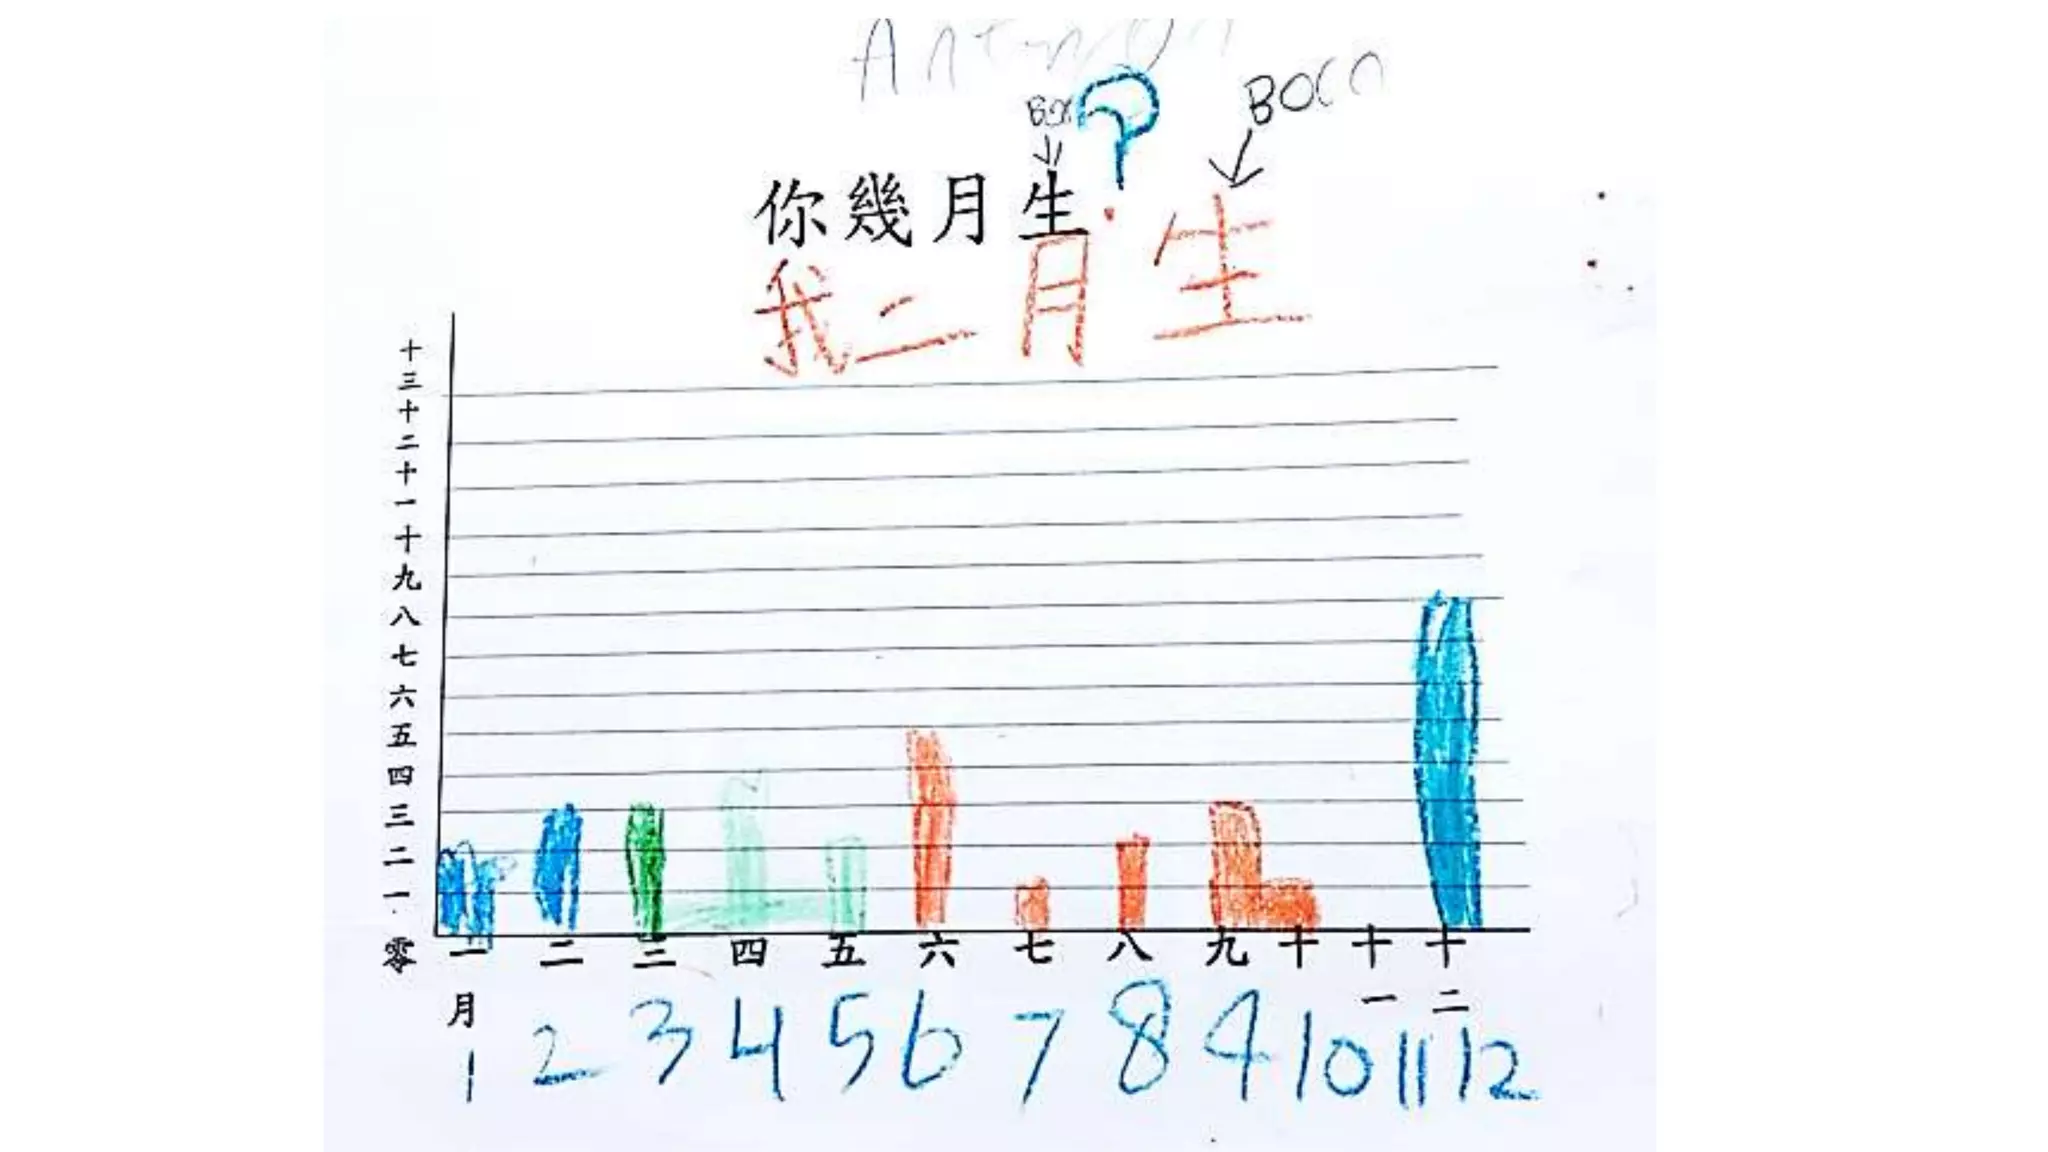 你幾月生?
我二月生
十三
十二
十一
十
九
八
七
六
五
四
三
二
一
零
一 二 三 四 五 六 七 八 九 十 十一 十二
月
1 2 3 4 5 6 7 8 9 10 11 12